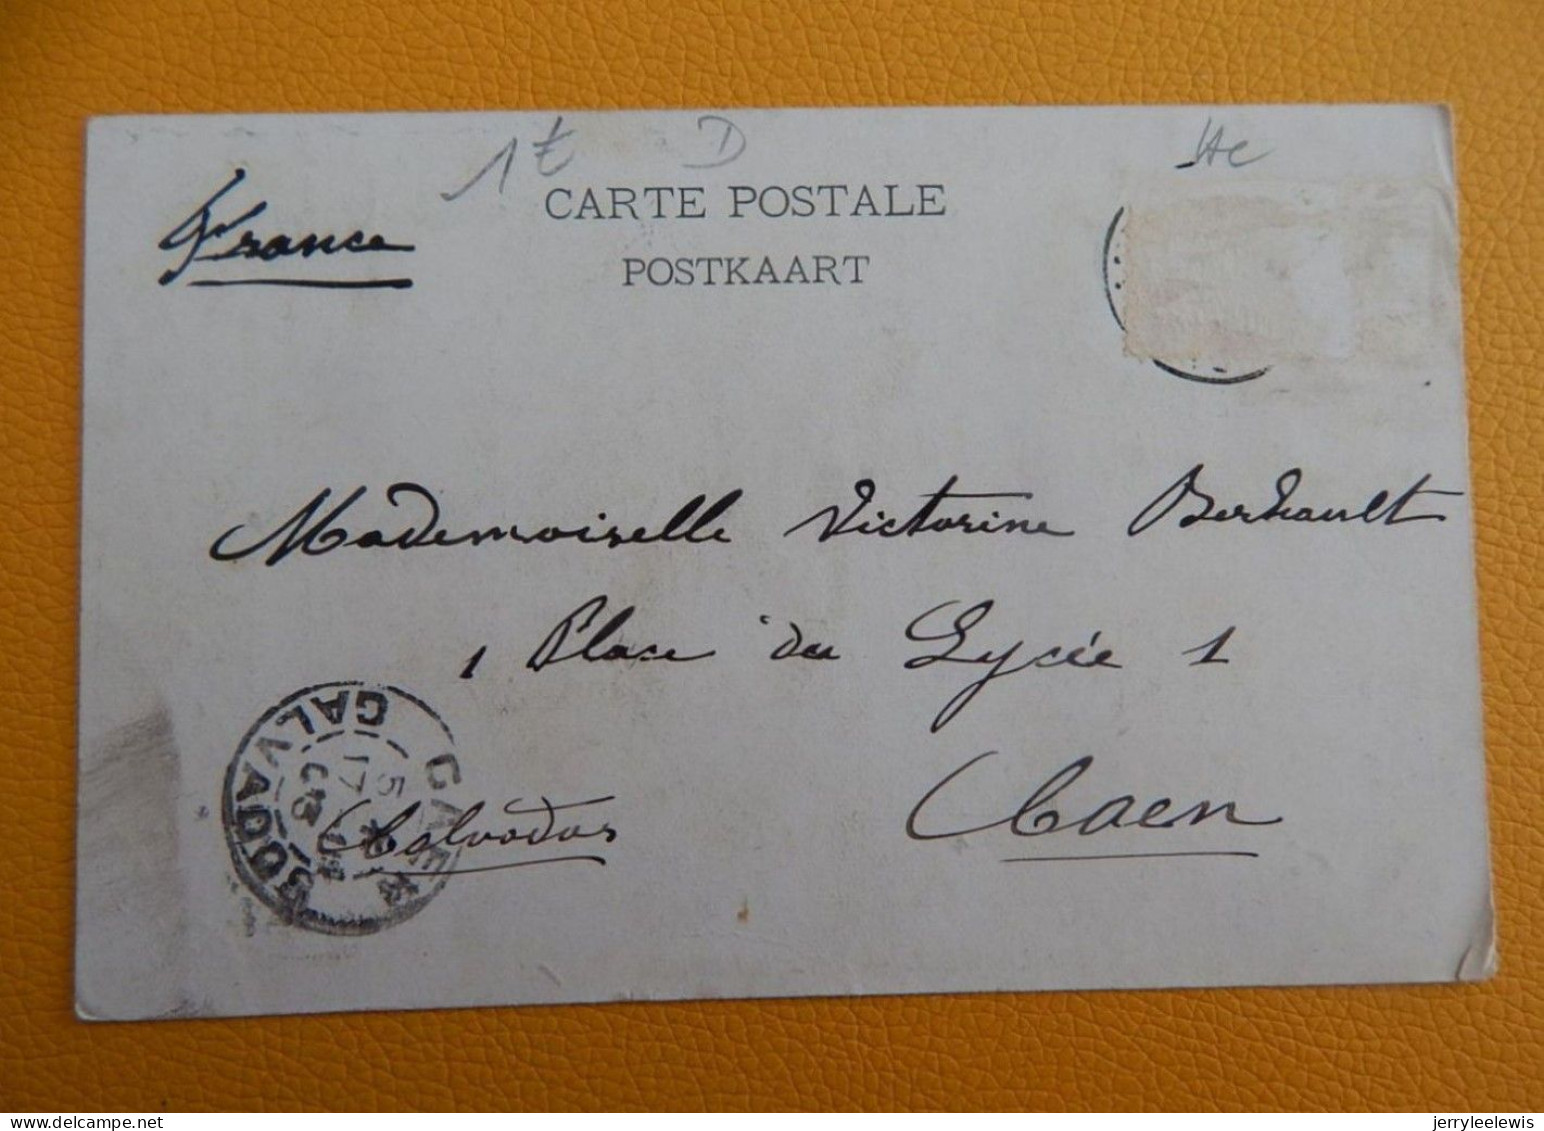 1€ D
France
CARTE POSTALE
POSTKAART
Mademoiselle Victorine Berhault
1 Place du Lycée 1
Caen
Calvados
CAEN
CALVADOS
5
17
03
jerryleelewis